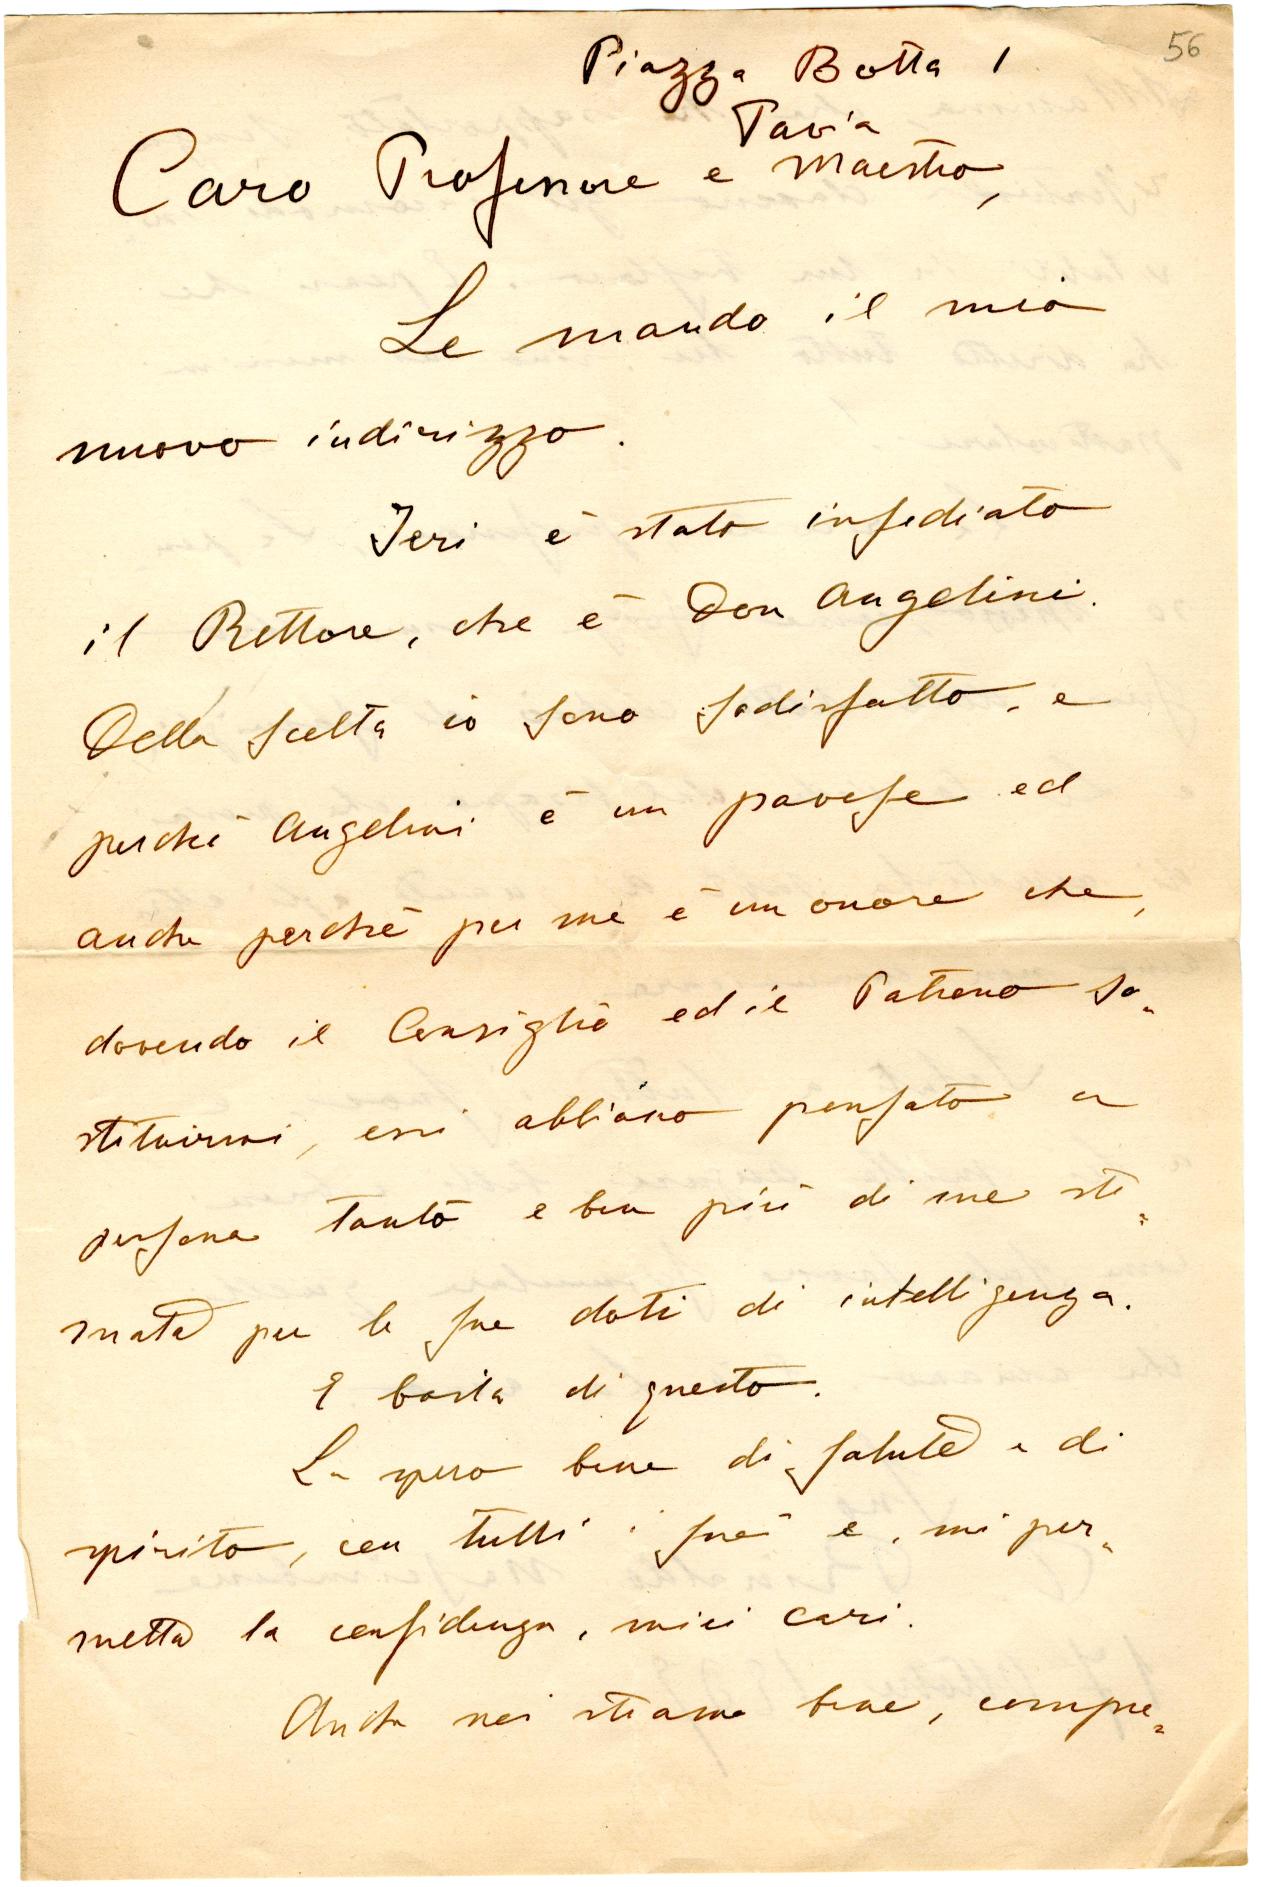 56
Piazza Botta 1
Pavia
Caro Professore e Maestro,
Le mando il mio
nuovo indirizzo.
Ieri è stato insediato
il Rettore, che è Don Angelini.
Della scelta io sono sodisfatto, e
perchè Angelini è un pavese ed
anche perchè per me è un onore che,
dovendo il Consiglio ed il Patrono so-
stituirmi, essi abbiano pensato a
persona tanto e ben più di me sti-
mata per le sue doti di intelligenza.
E basta di questo.
La spero bene di salute e di
spirito, con tutti i suoi e, mi per-
metta la confidenza, miei cari.
Anche noi stiamo bene, compre-